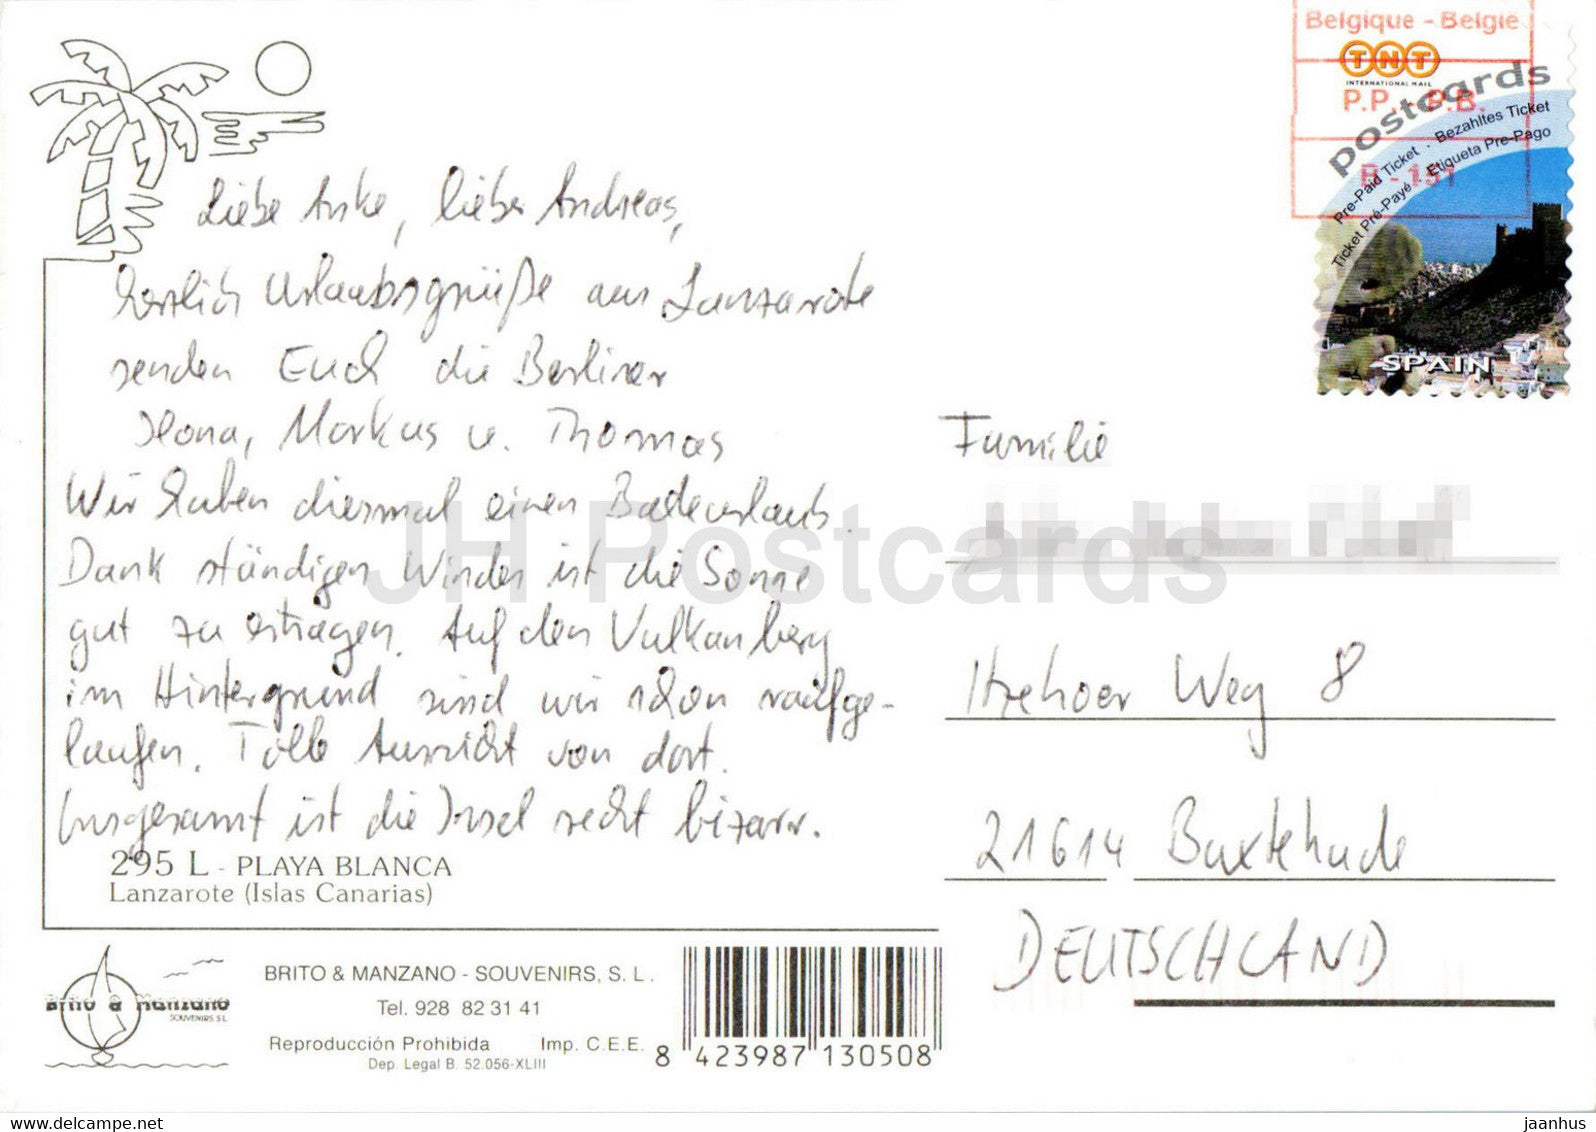 Belgique - België
TNT
INTERNATIONAL MAIL
P.P. - P.B.
B - 151
postcards
Pre-Paid Ticket . Bezahltes Ticket
Ticket Pré-Payé . Etiqueta Pre-Pago
SPAIN
Liebe Anke, lieber Andreas,
herzlich Urlaubsgrüße aus Lanzarote
senden Euch die Berliner
Ilona, Markus u. Thomas
Wir haben diesmal einen Badeurlaub.
Dank ständigen Windes ist die Sonne
gut zu ertragen. Auf den Vulkanberg
im Hintergrund sind wir schon raufge-
laufen. Tolle Aussicht von dort.
Insgesamt ist die Insel recht bizarr.
295 L - PLAYA BLANCA
Lanzarote (Islas Canarias)
Familie
Itzehoer Weg 8
21614 Buxtehude
DEUTSCHLAND
JH Postcards
Brito & Manzano
SOUVENIRS S.L
BRITO & MANZANO - SOUVENIRS, S. L.
Tel. 928 82 31 41
Reproducción Prohibida Imp. C.E.E.
Dep. Legal B. 52.056-XLIII
8 423987 130508
www.delcampe.net
jaanhus